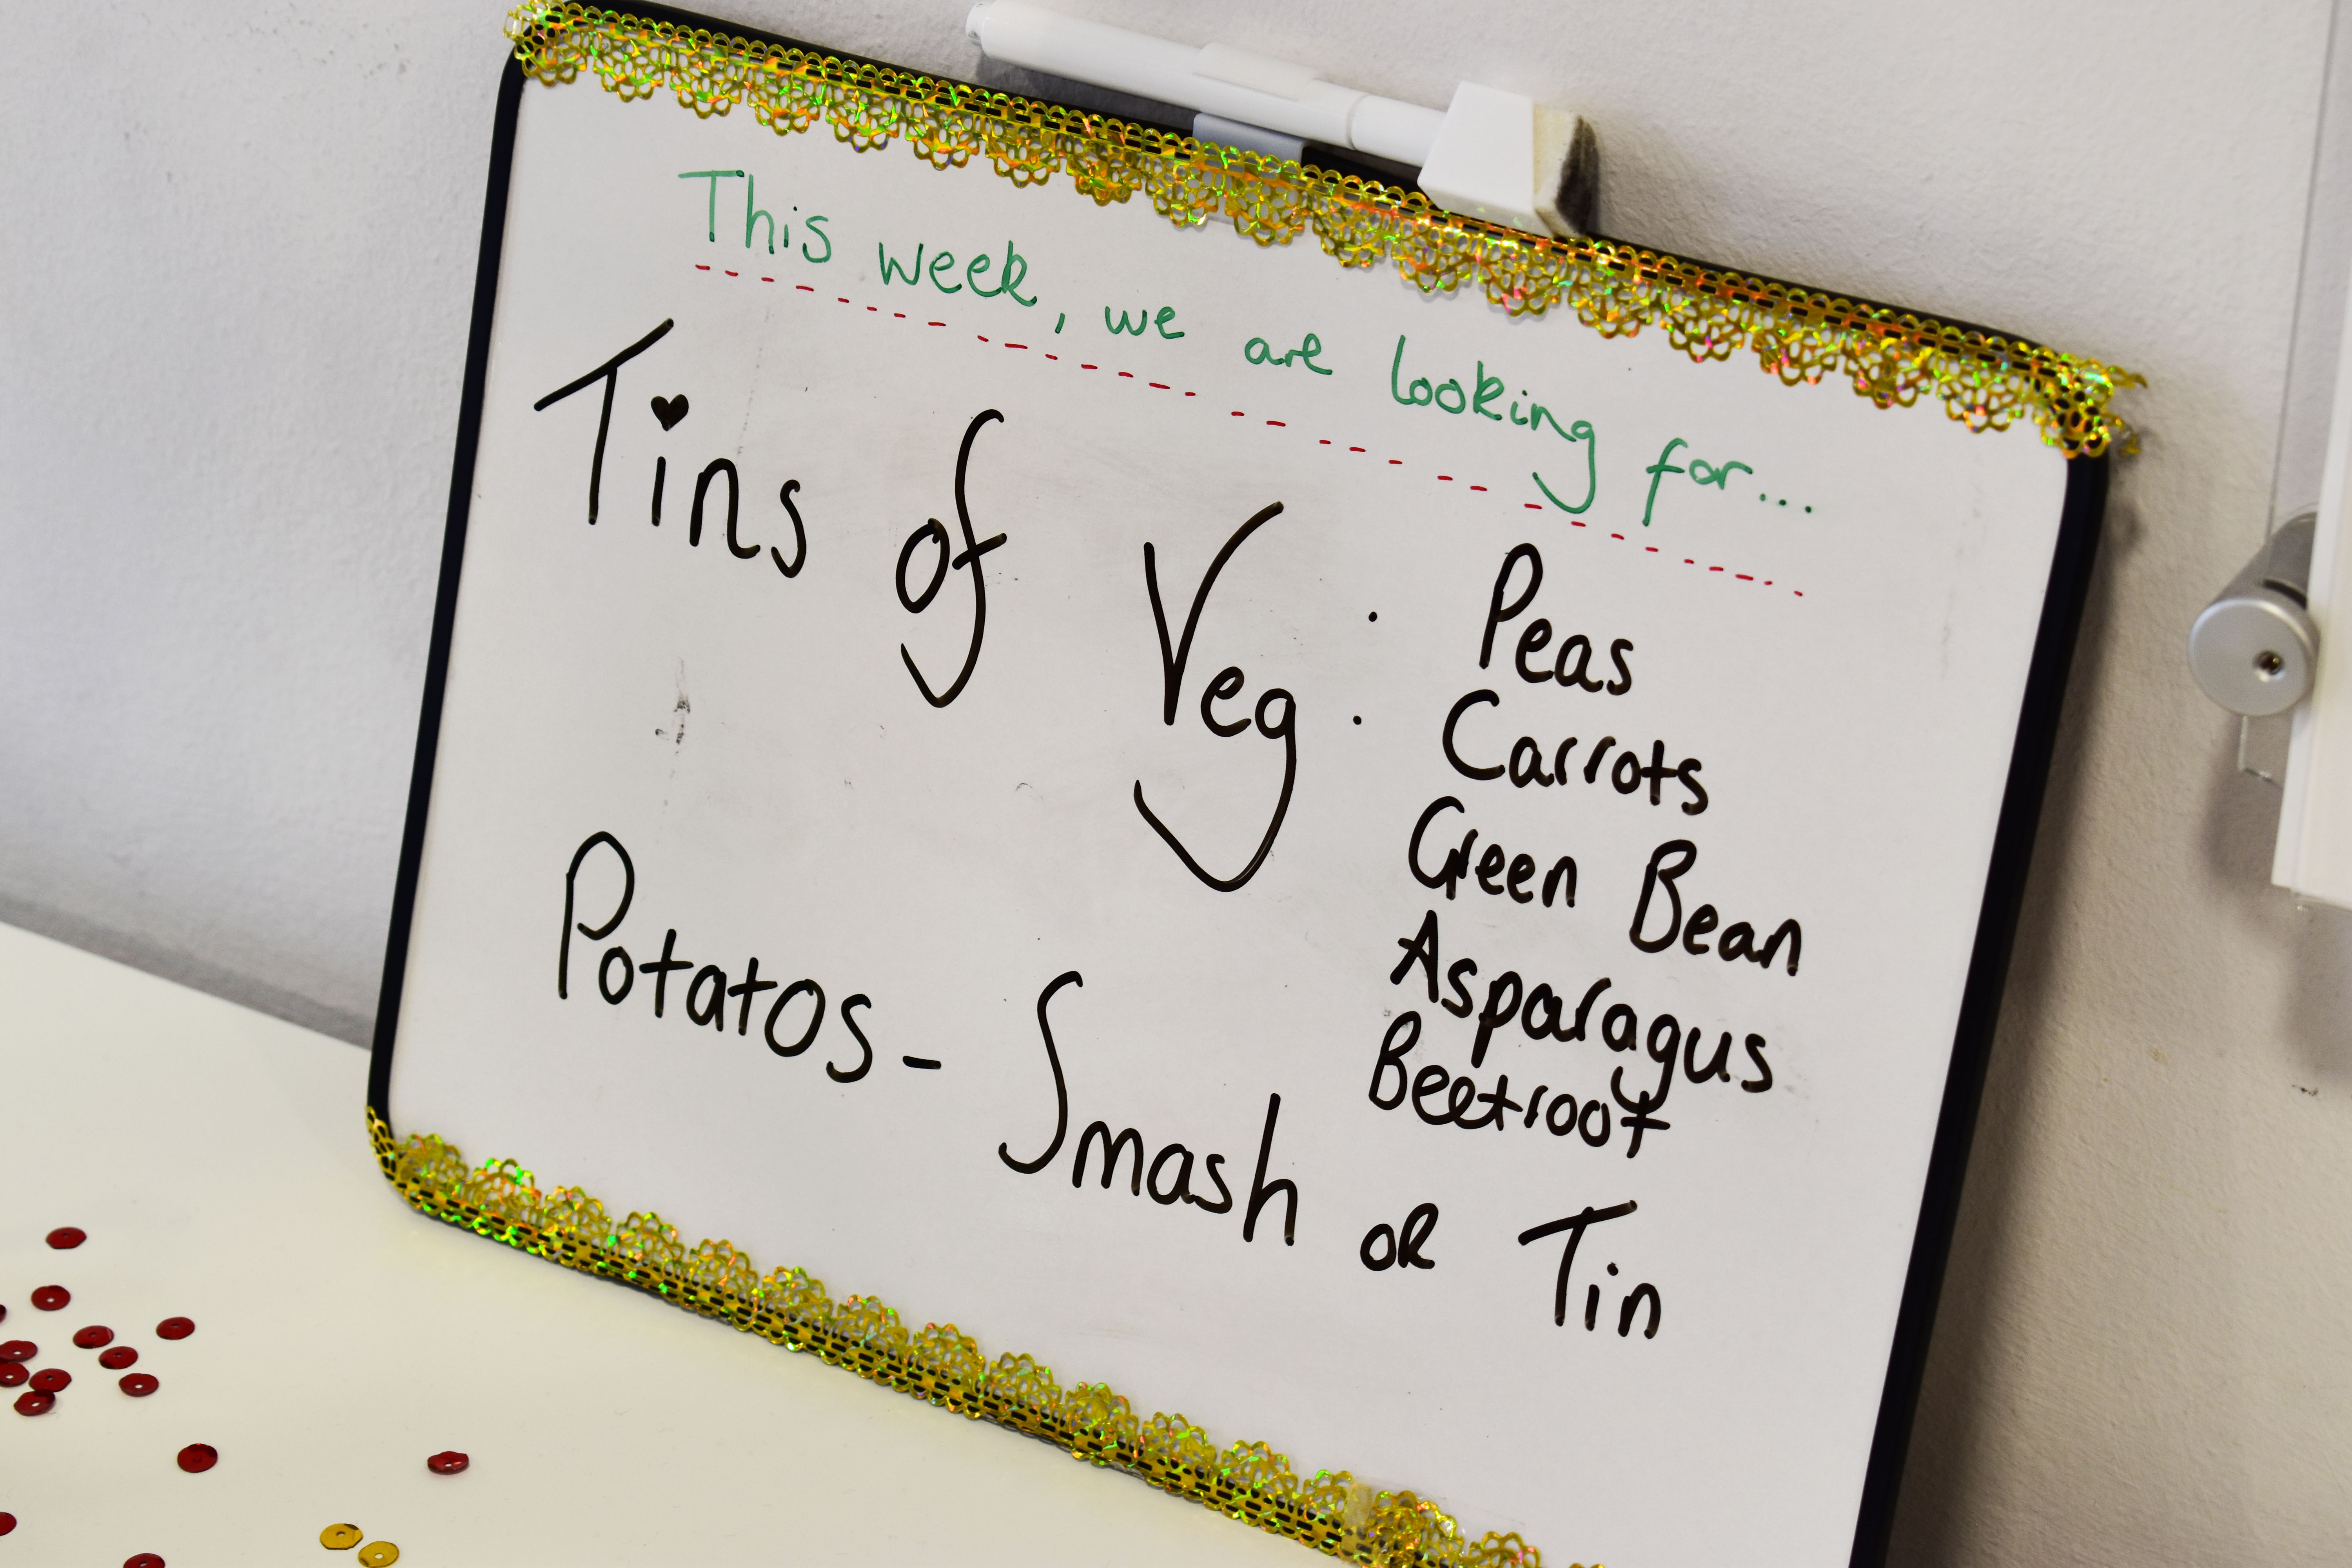 This week, we are looking for...
Tins of Veg : Peas
Carrots
Green Bean
Asparagus
Beetroot
Potatos - Smash or Tin